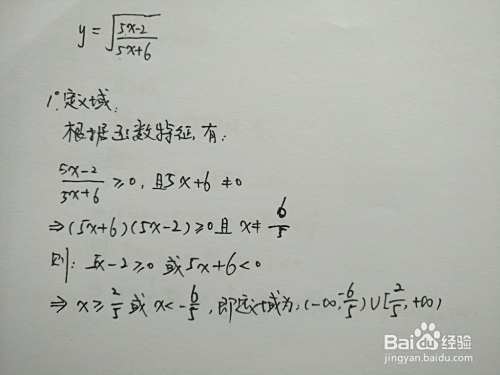 y = √((5x-2)/(5x+6))
1°定义域:
根据函数特征,有:
(5x-2)/(5x+6) ≥0,且5x+6≠0
⇒(5x+6)(5x-2)≥0且 x≠-6/5
则: 5x-2≥0 或5x+6<0
⇒ x≥2/5 或 x<-6/5, 即定义域为:(-∞,-6/5)∪[2/5,+∞)
Baidu经验
jingyan.baidu.com